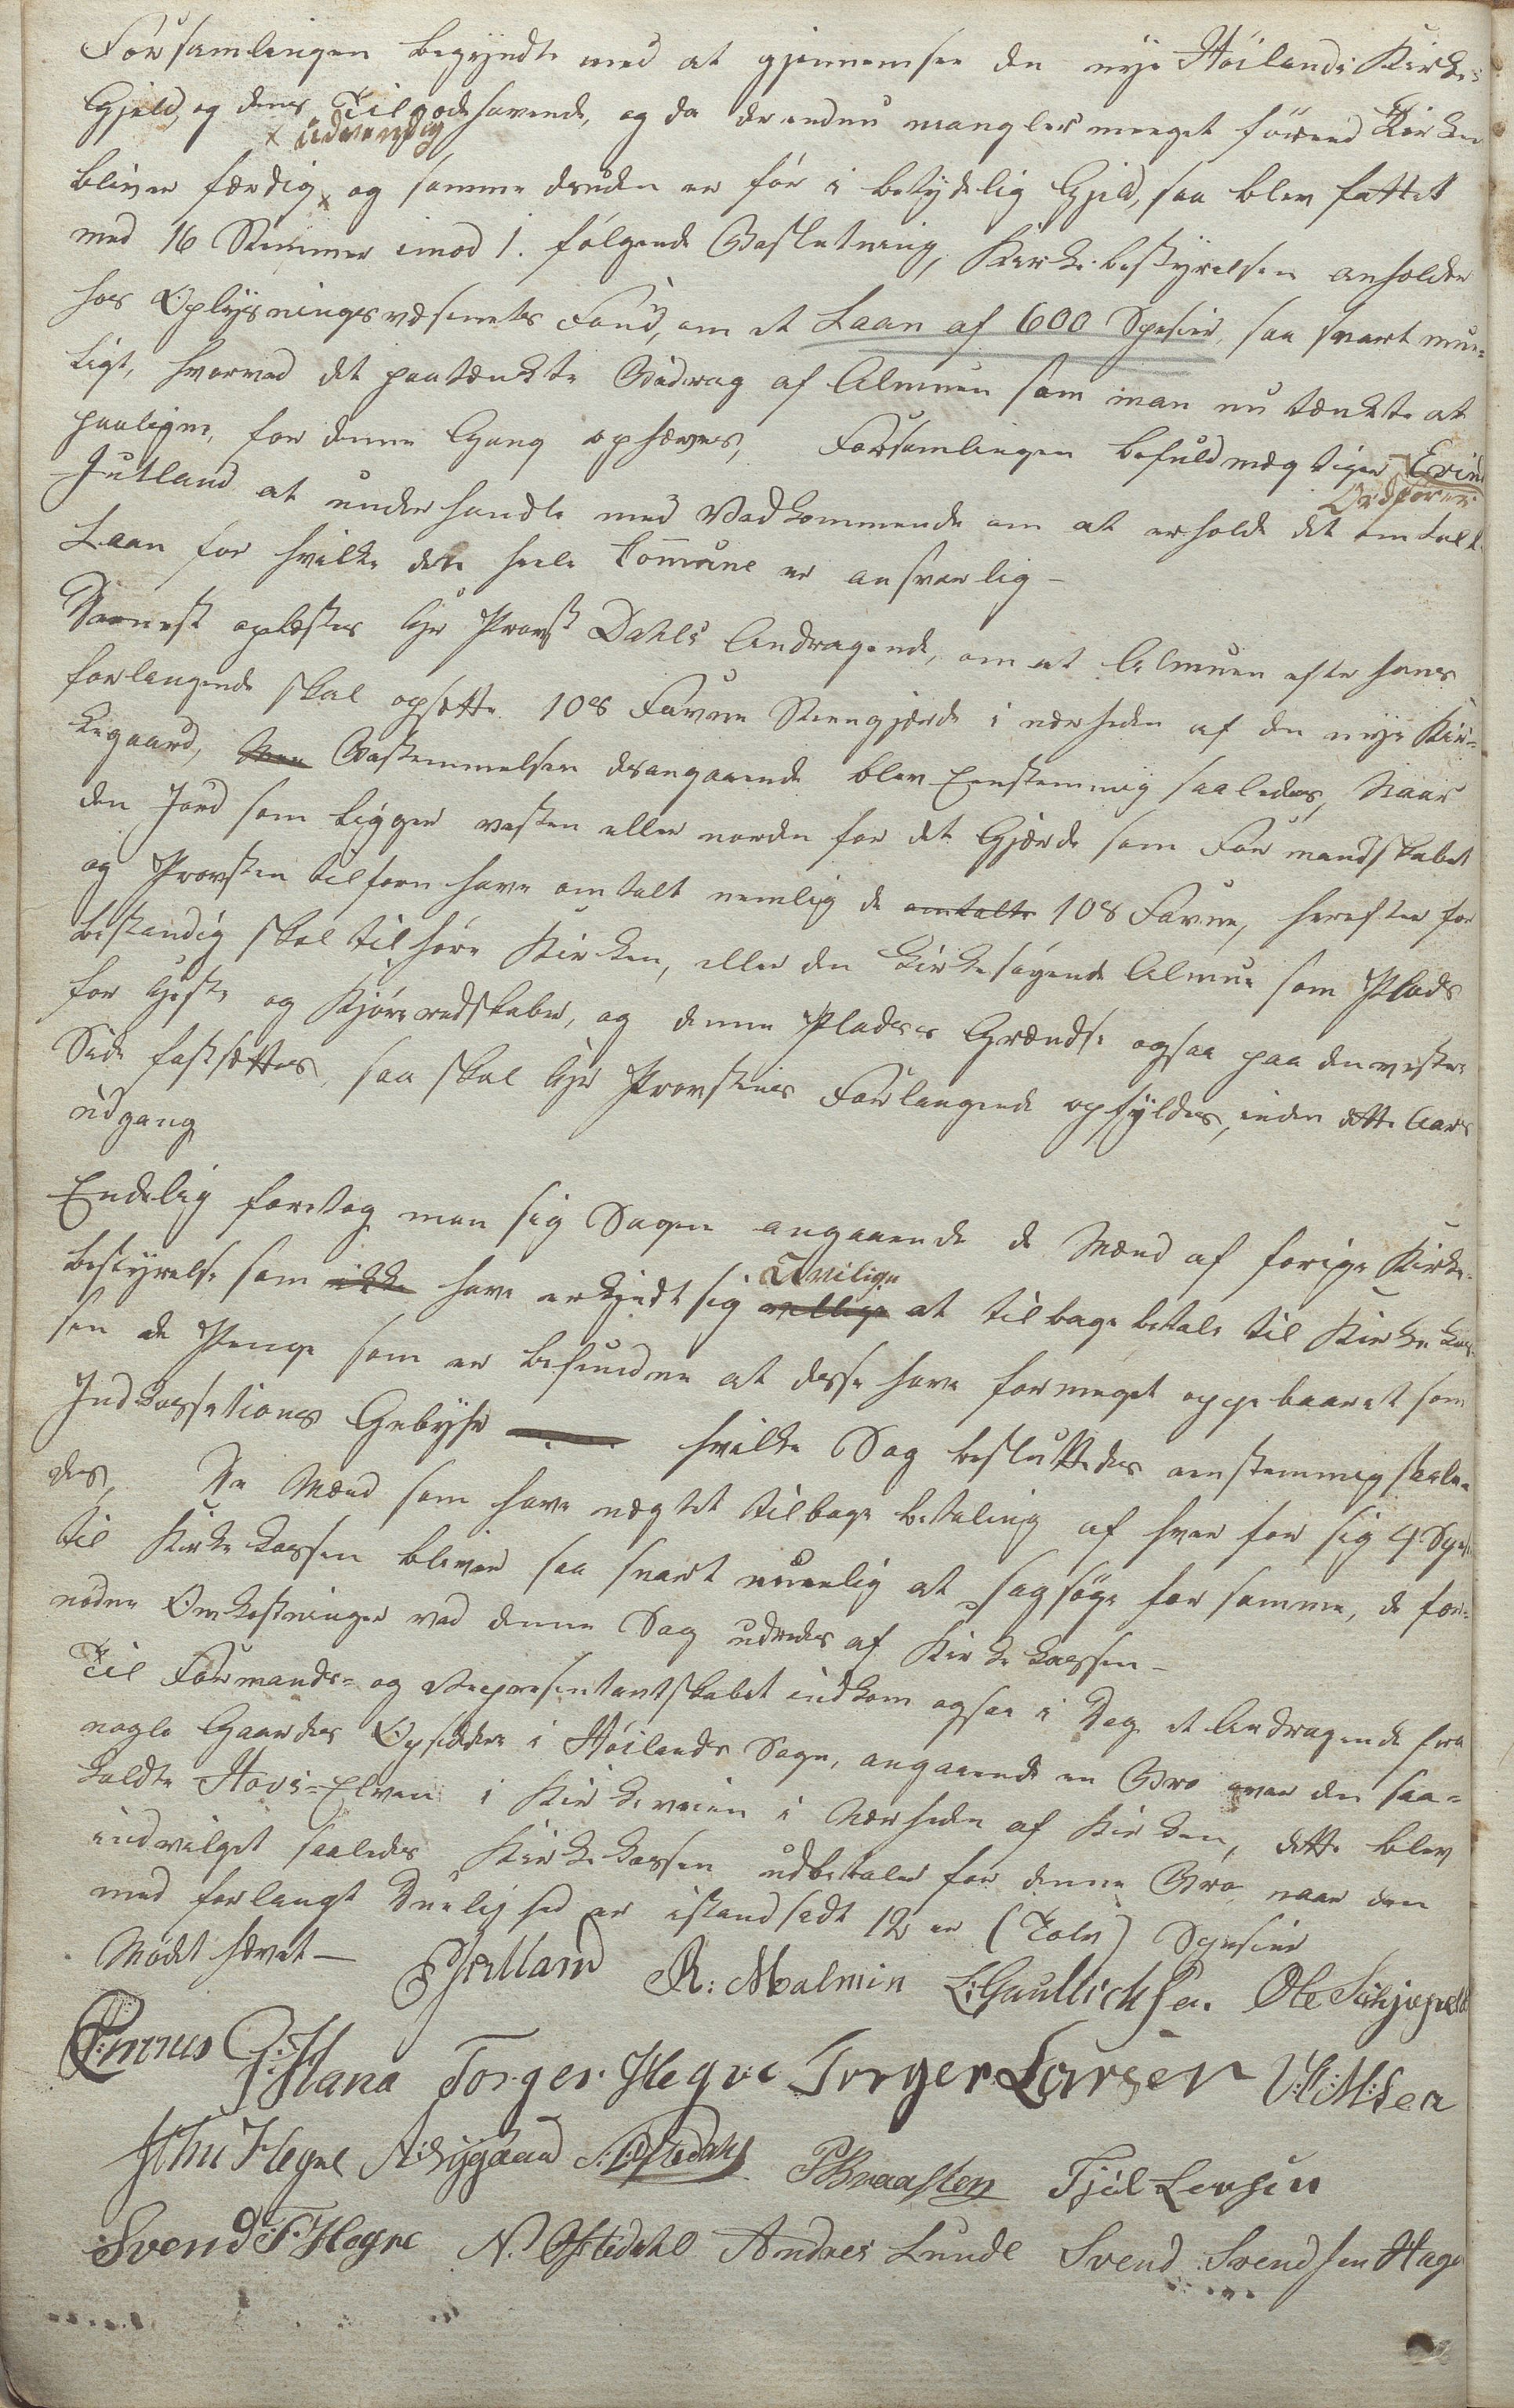 Forsamlingen begyndte med at gjennemsee den nye Høilands Kirkes
Gjeld, og dens Tilgodehavende, og da der endnu mangler meget førend Kirken
x udvendig
bliver færdig x og samme desuden er før i betydelig Gjeld, saa blev fattet
med 16 Stemmer imod 1. følgende Beslutning, Kirkebestyrelsen anholder
hos Oplysningsvæsenets Fond, om et Laan af 600 Spesier, saa snart mue-
ligt, hvorved det paatænkte Bidrag af Almuen som man nu tænkte at
paaligne, for denne Gang ophæves, Forsamlingen befuldmægtiger Erind
Ordfører
Jutland at underhandle med Vedkommende om at erholde det omtalte
Laan for hvilke den heele Commune er ansvarlig –
Dernest oplæstes Hr Provst Dahls Andragende, om at Almuen efter hans
forlangende skal opsette 108 Favne Steengjerde i nærheden af den nye Kir-
kegaard, Men Bestemmelsen desangaaende blev Eenstemmig saaledes, Naar
den Jord som ligger vesten eller norden for det Gjærde som Formandskabet
og Provsten tilforn have omtalt nemlig de omtalte 108 Favne, herefter for
bestandig skal tilhøre Kirken, eller den kirkesøgende Almue som Plads
for Heste og Kjøreredskaber, og denne Pladses Grændse ogsaa paa den vestre
Side fastsættes, saa skal Hr Provstens Forlangende opfyldes, inden dette Aars
udgang
Endelig foretog man sig Sagen angaaende de Mænd af forige Kirke-
bestyrelse som ikke have erkjendt sig villige Uvilige at tilbagebetale til Kirkekas-
sen de Penge som er befunden at disse have formeget oppebaaret som
Indkassations Gebyhr hvilke Sag besluttedes eenstemmig saale-
des, De Mænd som have nægtet tilbage betaling af hver for sig 4 Spesi
til Kirkekassen bliver saa snart muelig at sagsøge for samme, de for-
nødne Omkostninger ved denne Sag udredes af Kirkekassen –
Til Formands- og Repræsentantskabet indkom ogsaa i Dag et Andragende fra
nogle Gaardes Opsiddere i Høilands Sogn, angaaende en Bro over den saa-
kaldte Hovs-Elven i Kirkeveien i Nærheden af Kirken, dette blev
indvilget saaledes Kirkekassen udbetaler for denne Bro naar den
med forlangt Duelighed er istandsadt 12 er (Tolv) Spesier
Mødet hævet – EJutland R: Malmin L: Gaullichsen. Ole Schjæveld
Enevus G. Hana Torger Hegre Torger Larsen
John Hegre A: Lyggaard Oftedahl PBraasten Tjøl Larsen
Svend F Hegre N. Oftedahl Andres Lunde Svend Svendsen Hage